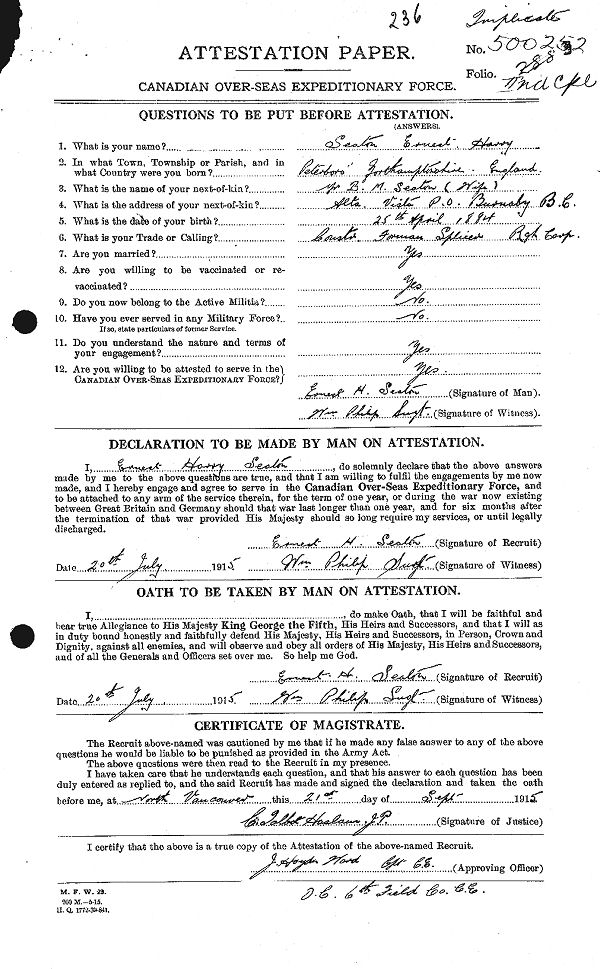 236
Triplicate
ATTESTATION PAPER.
No. 500252
Folio. 288
CANADIAN OVER-SEAS EXPEDITIONARY FORCE.
2nd Cpl
QUESTIONS TO BE PUT BEFORE ATTESTATION.
(ANSWERS).
1. What is your name? Seaton Ernest Harry
2. In what Town, Township or Parish, and in
what Country were you born? Peterboro' Northamptonshire England
3. What is the name of your next-of-kin? B. M. Seaton (Wife)
4. What is the address of your next-of-kin? Alta Vista P.O. Burnaby B.C.
5. What is the date of your birth? 25th April 1884
6. What is your Trade or Calling? Forman Splicer
7. Are you married? Yes
8. Are you willing to be vaccinated or re-
vaccinated? Yes
9. Do you now belong to the Active Militia? No.
10. Have you ever served in any Military Force? No.
If so, state particulars of former Service.
11. Do you understand the nature and terms of
your engagement? Yes
12. Are you willing to be attested to serve in the
CANADIAN OVER-SEAS EXPEDITIONARY FORCE? Yes.
Ernest H. Seaton (Signature of Man).
Wm Philip Sergt. (Signature of Witness).
DECLARATION TO BE MADE BY MAN ON ATTESTATION.
I, Ernest Harry Seaton, do solemnly declare that the above answers
made by me to the above questions are true, and that I am willing to fulfil the engagements by me now
made, and I hereby engage and agree to serve in the Canadian Over-Seas Expeditionary Force, and
to be attached to any arm of the service therein, for the term of one year, or during the war now existing
between Great Britain and Germany should that war last longer than one year, and for six months after
the termination of that war provided His Majesty should so long require my services, or until legally
discharged.
Ernest H. Seaton (Signature of Recruit)
Date 20th July 1915 Wm Philip Sergt (Signature of Witness)
OATH TO BE TAKEN BY MAN ON ATTESTATION.
I, , do make Oath, that I will be faithful and
bear true Allegiance to His Majesty King George the Fifth, His Heirs and Successors, and that I will as
in duty bound honestly and faithfully defend His Majesty, His Heirs and Successors, in Person, Crown and
Dignity, against all enemies, and will observe and obey all orders of His Majesty, His Heirs and Successors,
and of all the Generals and Officers set over me. So help me God.
Ernest H. Seaton (Signature of Recruit)
Date 20th July 1915 Wm Philip Sergt (Signature of Witness)
CERTIFICATE OF MAGISTRATE.
The Recruit above-named was cautioned by me that if he made any false answer to any of the above
questions he would be liable to be punished as provided in the Army Act.
The above questions were then read to the Recruit in my presence.
I have taken care that he understands each question, and that his answer to each question has been
duly entered as replied to, and the said Recruit has made and signed the declaration and taken the oath
before me, at North Vancouver this 21st day of Sept 1915
J.P. (Signature of Justice)
I certify that the above is a true copy of the Attestation of the above-named Recruit.
Ward Cpt C.E. (Approving Officer)
M. F. W. 23.
200 M.—6-15.
H. Q. 1772-39-841.
O.C. 6th Field Co. C.E.